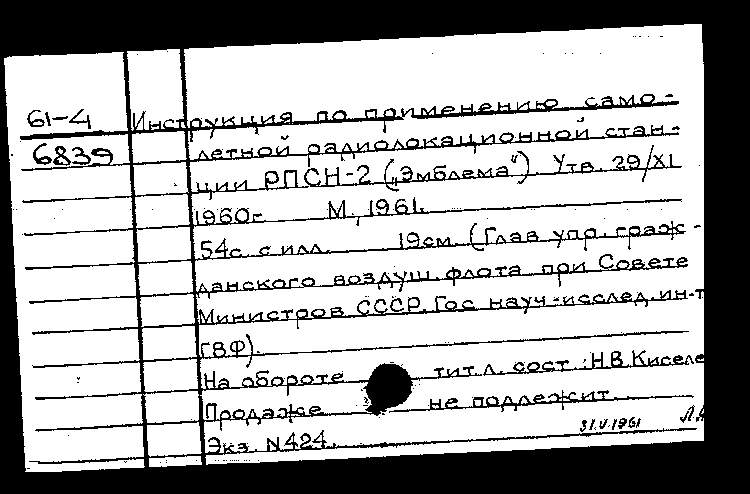 61-4 Инструкция по применению само-
6839 летной радиолокационной стан-
ции РПСН-2 („Эмблема"). Утв. 29/XI
1960г. М., 1961.
54с. с илл. 19см. (Глав. упр. граж-
данского воздуш. флота при Совете
Министров СССР. Гос науч-исслед. ин-т
ГВФ).
На обороте тит. л. сост.: Н.В. Киселе
Продаже не подлежит.
Экз. N424. 31.V.1961